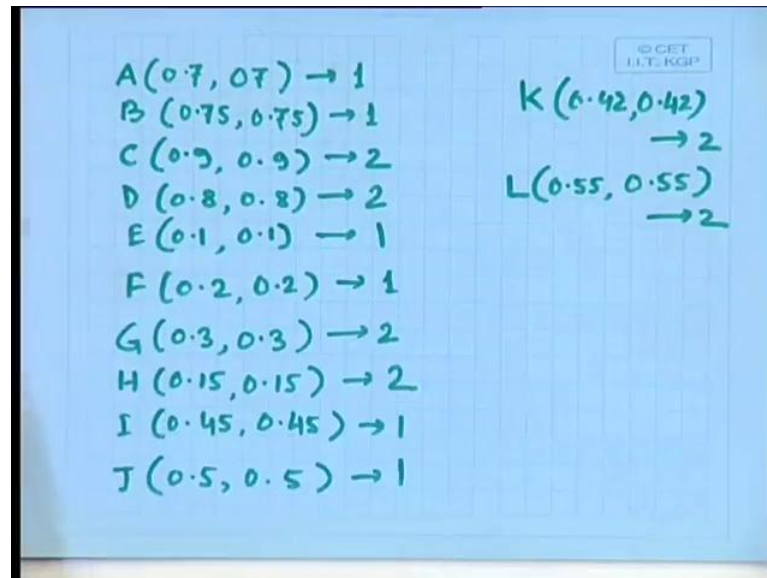 © CET
I.I.T. KGP
A (0.7, 07) → 1
B (0.75, 0.75) → 1
C (0.9, 0.9) → 2
D (0.8, 0.8) → 2
E (0.1, 0.1) → 1
F (0.2, 0.2) → 1
G (0.3, 0.3) → 2
H (0.15, 0.15) → 2
I (0.45, 0.45) → 1
J (0.5, 0.5) → 1
K (0.42, 0.42)
→ 2
L (0.55, 0.55)
→ 2